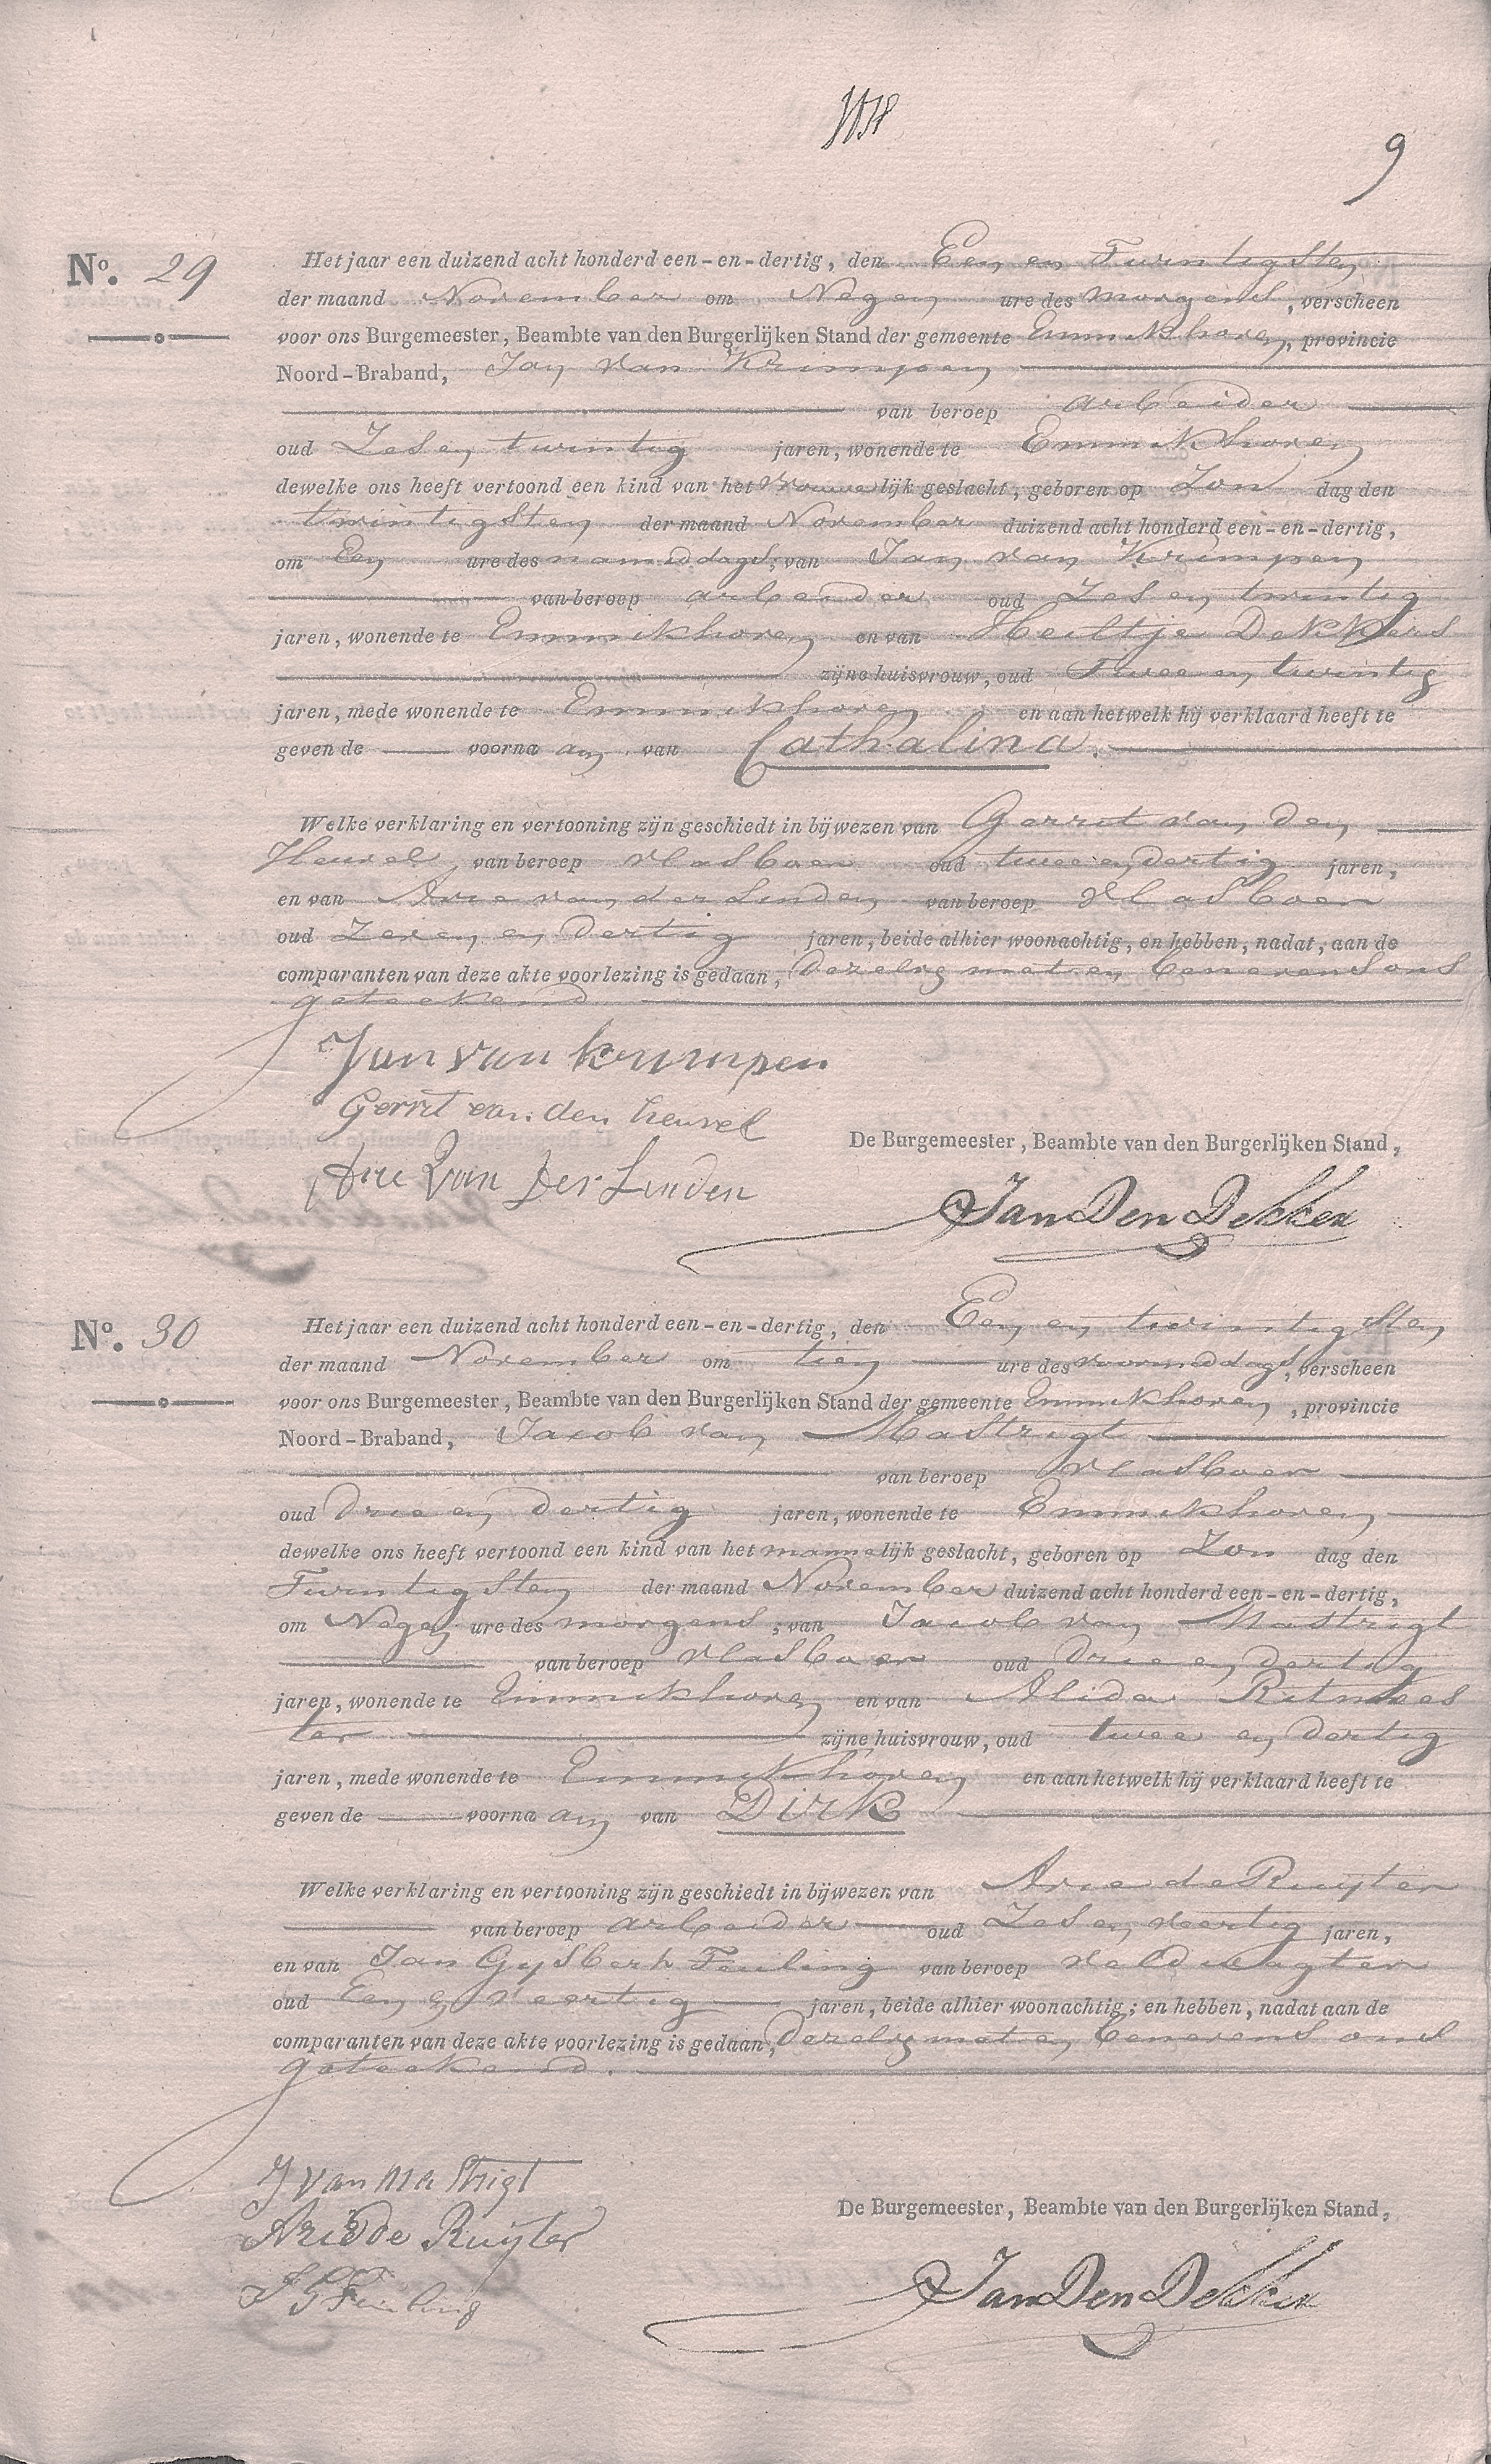 9
N°. 29
Het jaar een duizend acht honderd een-en-dertig, den Een en Twintigsten
der maand November om Negen ure des morgens, verscheen
voor ons Burgemeester, Beambte van den Burgerlijken Stand der gemeente Emmikhoven, provincie
Noord-Braband, Jan van Krimpen
van beroep arbeider
oud Zes en twintig jaren, wonende te Emmikhoven
dewelke ons heeft vertoond een kind van het vrouwelijk geslacht, geboren op Zon dag den
twintigsten der maand November duizend acht honderd een-en-dertig,
om Een ure des namiddags, van Jan van Krimpen
van beroep arbeider oud Zes en twintig
jaren, wonende te Emmikhoven en van Heiltje Dekkers
zijne huisvrouw, oud Twee en twintig
jaren, mede wonende te Emmikhoven en aan hetwelk hij verklaard heeft te
geven de voorna am van Cathalina.
Welke verklaring en vertooning zijn geschiedt in bijwezen van Gerrit van den
Heuvel van beroep vlasboer oud twee en dertig jaren,
en van Arie van der Linden van beroep vlasboer
oud Zeven en dertig jaren, beide alhier woonachtig, en hebben, nadat, aan de
comparanten van deze akte voorlezing is gedaan, dezelve met en benevens ons
geteekend
Jan van krimpen
Gerrit van den heuvel
De Burgemeester, Beambte van den Burgerlijken Stand,
Arie Van Der Linden
Jan Den Dekker
N°. 30
Het jaar een duizend acht honderd een-en-dertig, den Een en twintigsten
der maand November om tien ure des voormiddags, verscheen
voor ons Burgemeester, Beambte van den Burgerlijken Stand der gemeente Emmikhoven, provincie
Noord-Braband, Jacob van Mastrigt
van beroep vlasboer
oud Drie en dertig jaren, wonende te Emmikhoven
dewelke ons heeft vertoond een kind van het mannelijk geslacht, geboren op Zon dag den
Twintigsten der maand November duizend acht honderd een-en-dertig,
om Negen ure des morgens, van Jacob van Mastrigt
van beroep vlasboer oud Drie en dertig
jaren, wonende te Emmikhoven en van Alida Ritmees
ter zijne huisvrouw, oud twee en dertig
jaren, mede wonende te Emmikhoven en aan hetwelk hij verklaard heeft te
geven de voorna am van Dirk
Welke verklaring en vertooning zijn geschiedt in bijwezen van Arie de Ruyter
van beroep arbeider oud Zes en veertig jaren,
en van Jan Gysbert Teuling van beroep veldwagter
oud Een en veertig jaren, beide alhier woonachtig; en hebben, nadat aan de
comparanten van deze akte voorlezing is gedaan, dezelve met en benevens ons
geteekend.
J van Mastrigt
De Burgemeester, Beambte van den Burgerlijken Stand,
Arie de Ruijter
J G Teuling
Jan Den Dekker